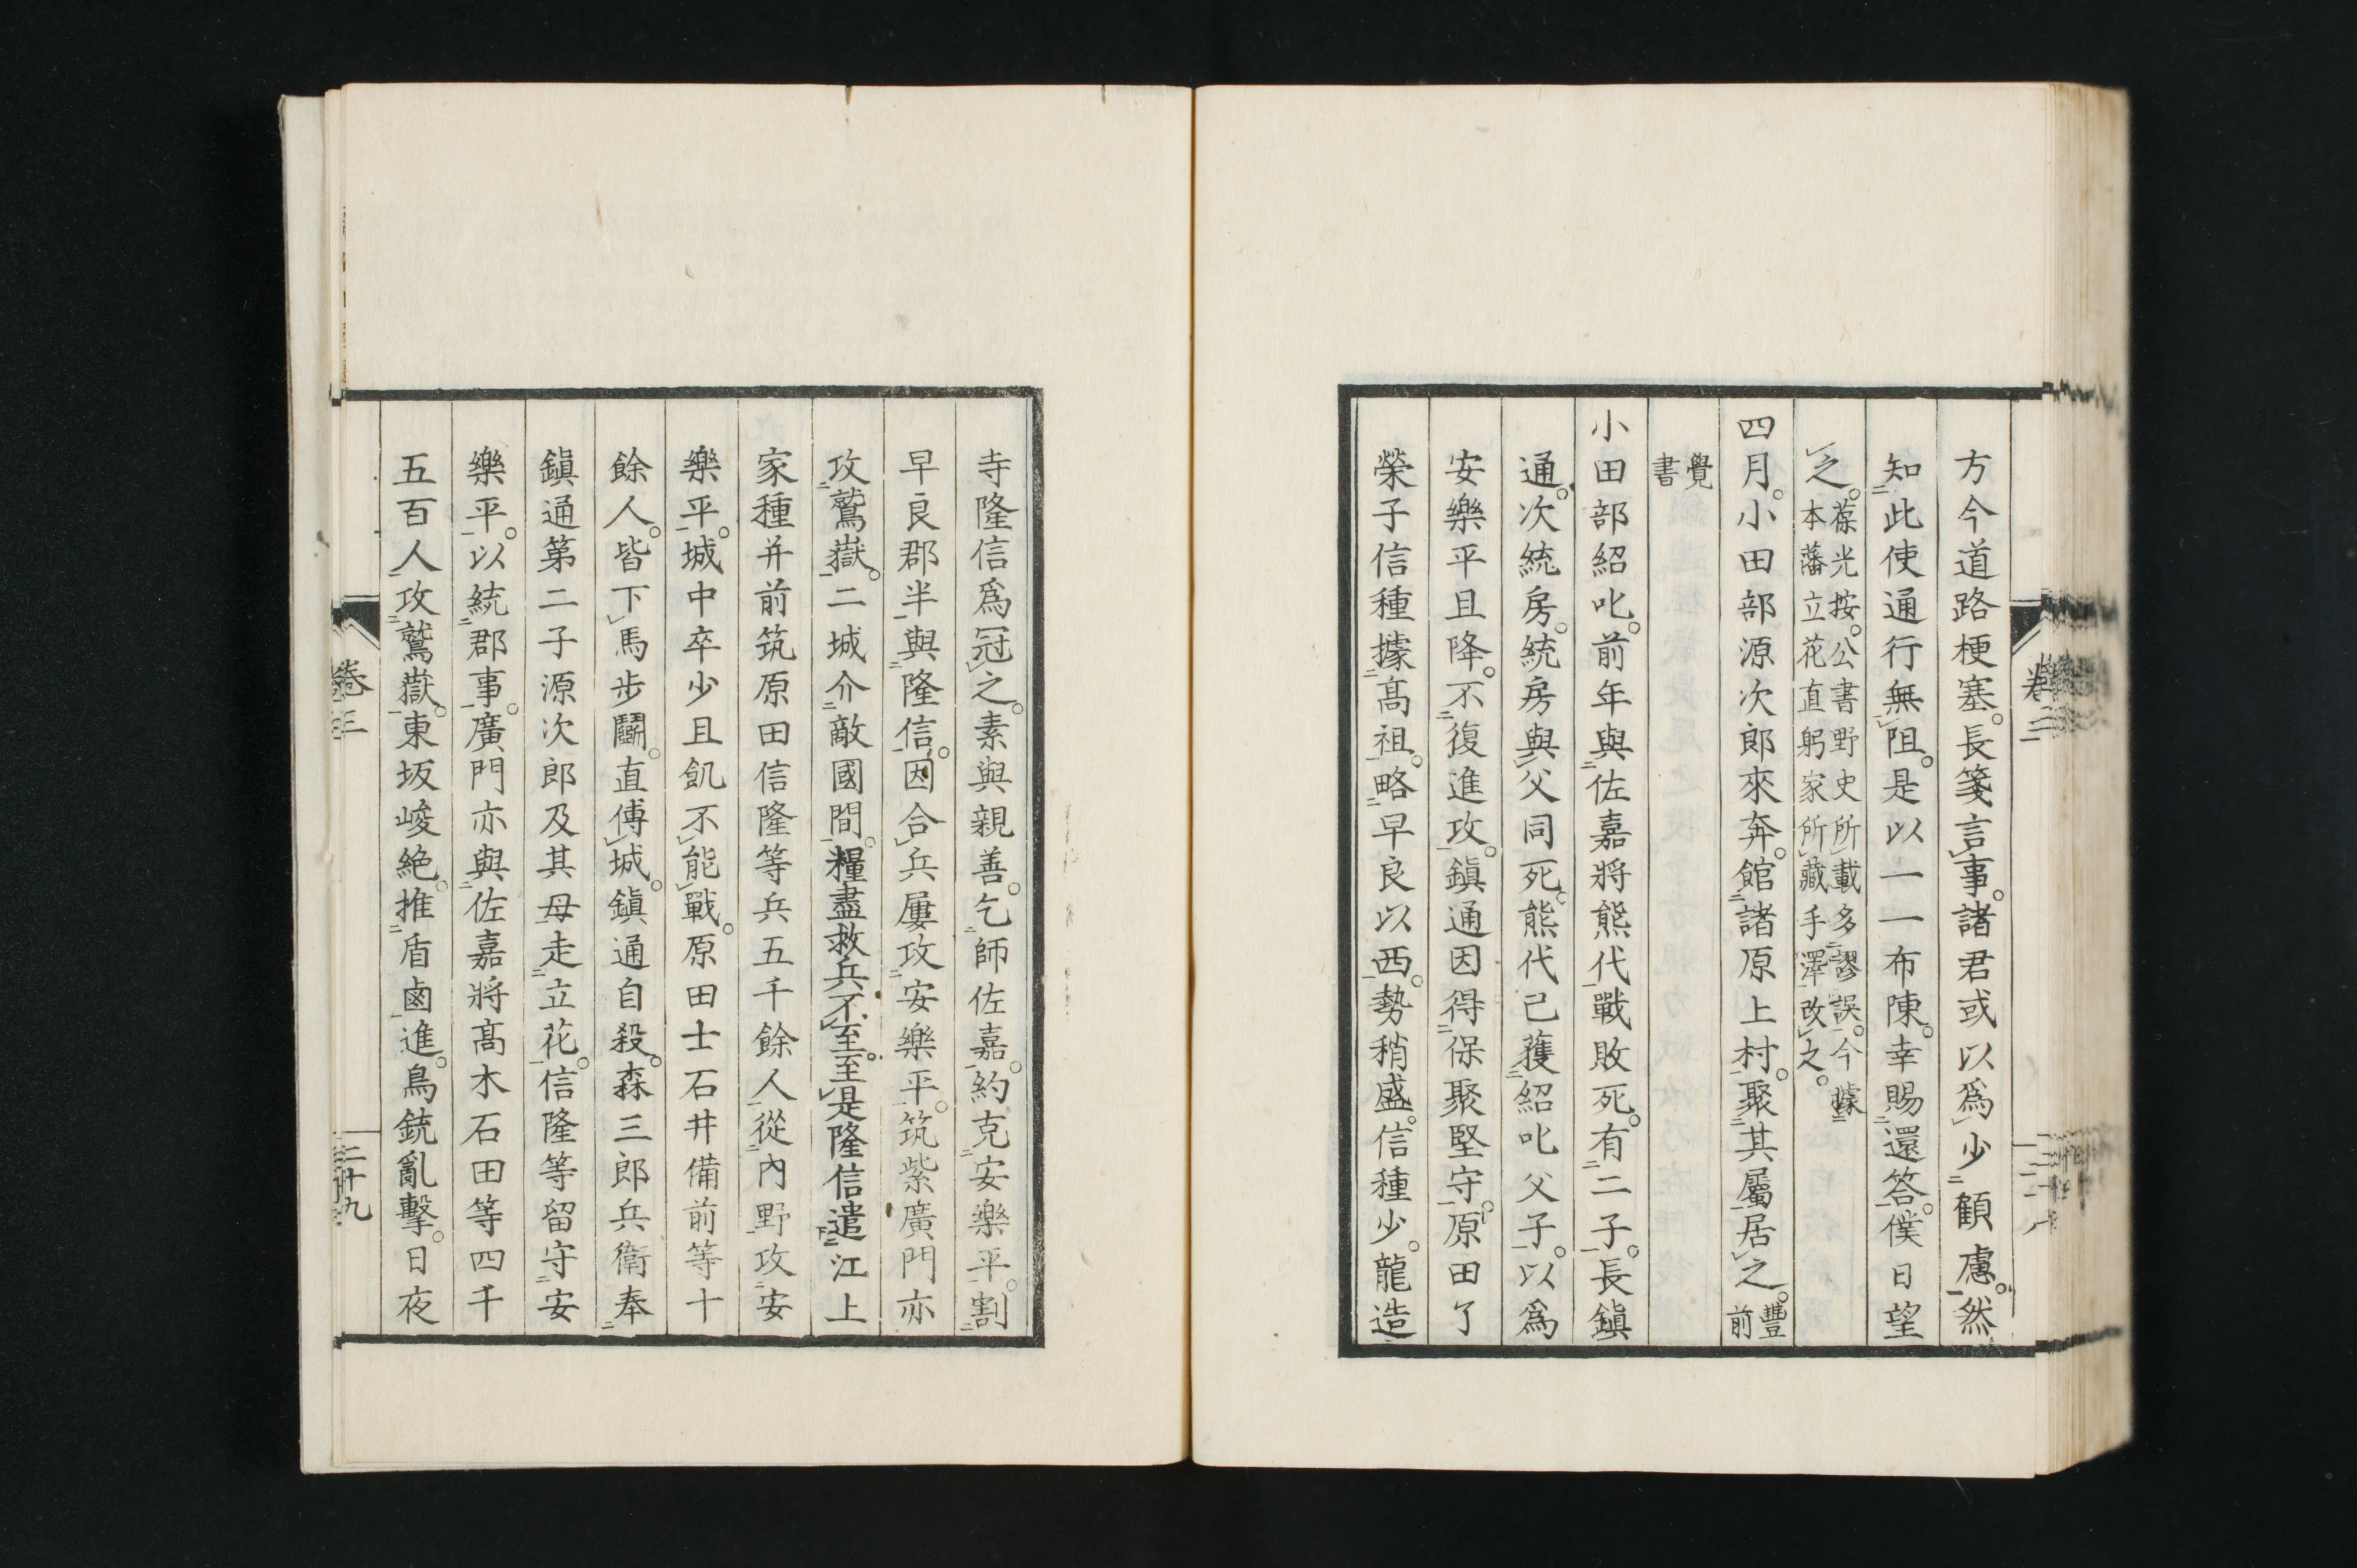 方今道路梗塞。長箋言事。諸君或以爲少顧慮。然
知此使通行無阻。是以一一布陳。幸賜還答。僕日望
之。葆光按。公書野史所載多謬誤。今據
本藩立花直躬家所藏手澤改之。
四月。小田部源次郎來奔。館諸原上村。聚其屬居之。豐前
覺書
小田部紹叱。前年與佐嘉將熊代戰敗死。有二子。長鎭
通。次統房。統房與父同死。熊代已獲紹叱父子。以爲
安樂平且降。不復進攻。鎭通因得保聚堅守。原田了
榮子信種據高祖。略早良以西。勢稍盛。信種少。龍造
寺隆信爲冠之。素與親善。乞師佐嘉。約克安樂平。割
早良郡半與隆信。因合兵屢攻安樂平。筑紫廣門亦
攻鷲嶽。二城介敵國間。糧盡救兵不至。至是隆信遣江上
家種并前筑原田信隆等兵五千餘人從內野攻安
樂平。城中卒少且飢不能戰。原田士石井備前等十
餘人。皆下馬步鬭。直傅城。鎭通自殺。森三郎兵衞奉
鎭通第二子源次郎及其母走立花。信隆等留守安
樂平。以統郡事。廣門亦與佐嘉將高木石田等四千
五百人攻鷲嶽。東坂峻絶。推盾鹵進。鳥銃亂擊。日夜
卷三
二十九